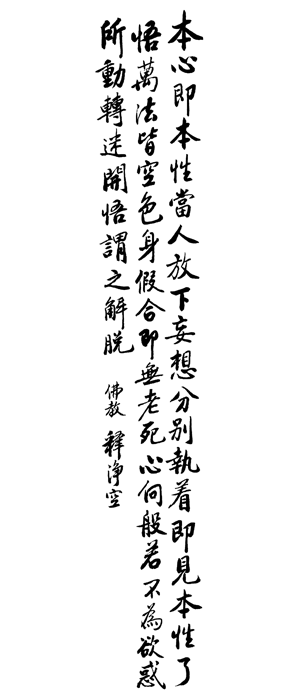 本心即本性當人放下妄想分別執着即見本性了
悟萬法皆空色身假合即無老死心何般若不為欲惑
所動轉迷開悟謂之解脫
佛教 釋淨空